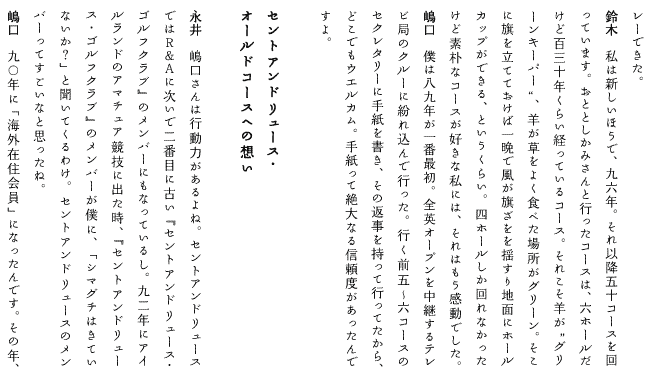 レーできた。
鈴木　私は新しいほうで、九六年。それ以降五十コースを回
っています。おととしかみさんと行ったコースは、六ホールだ
けど百三十年くらい経っているコース。それこそ羊が〝グリ
ーンキーパー〟、羊が草をよく食べた場所がグリーン。そこ
に旗を立てておけば一晩で風が旗ざをを揺すり地面にホール
カップができる、というくらい。四ホールしか回れなかった
けど素朴なコースが好きな私には、それはもう感動でした。
嶋口　僕は八九年が一番最初。全英オープンを中継するテレ
ビ局のクルーに紛れ込んで行った。行く前五〜六コースの
セクレタリーに手紙を書き、その返事を持って行ってたから、
どこでもウエルカム。手紙って絶大なる信頼度があったんで
すよ。
セントアンドリュース・
オールドコースへの想い
永井　嶋口さんは行動力があるよね。セントアンドリュース
ではR&Aに次いで二番目に古い『セントアンドリュース・
ゴルフクラブ』のメンバーにもなっているし。九二年にアイ
ルランドのアマチュア競技に出た時、『セントアンドリュー
ス・ゴルフクラブ』のメンバーが僕に、「シマグチはきてい
ないか?」と聞いてくるわけ。セントアンドリュースのメン
バーってすごいなと思ったね。
嶋口　九〇年に「海外在住会員」になったんです。その年、